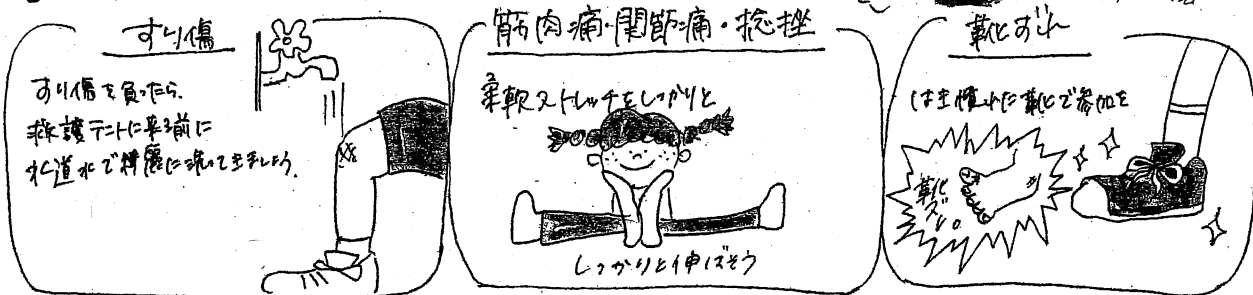 すり傷
すり傷を負ったら、
救護テントに来る前に
水道水で綺麗に洗って来ましょう。
筋肉痛・関節痛・捻挫
柔軟ストレッチをしっかりと
しっかりと伸ばそう
靴ずれ
はき慣れた靴で参加を
靴
ズレ。